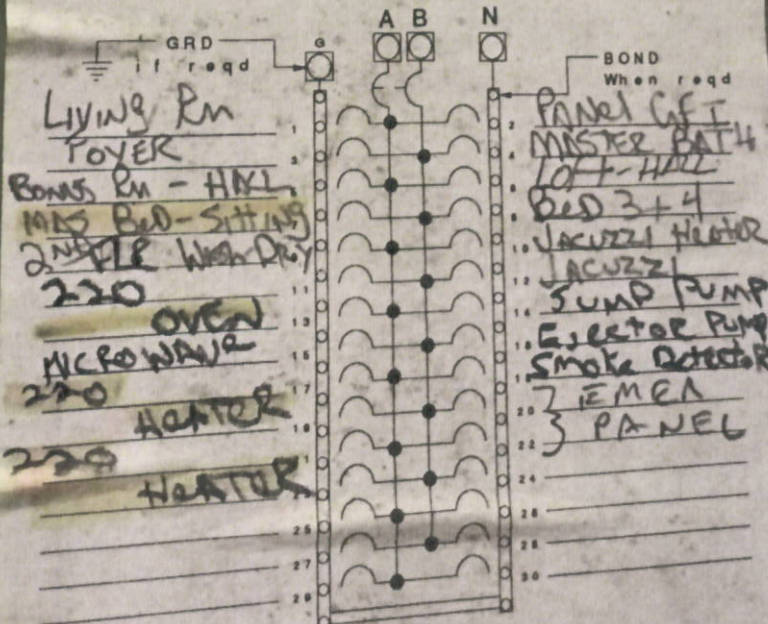 A B N
GRD
if reqd
G
BOND
When reqd
LIVING Rm
1
FOYER
3
BONUS Rm - HALL
5
MAS BED - SITTING
2nd FLR Wash-Dry
220
11
OVEN
13
MICROWAVE
15
220
17
HEATER
19
220
21
HEATER
25
27
29
2
PANEL GFI
4
MASTER BATH
6
LOFT-HALL
8
BED 3+4
10
JACUZZI HEATER
12
JACUZZI
14
SUMP PUMP
16
EJECTOR PUMP
18
Smoke Detector
20
EMER
22
PANEL
24
26
28
30